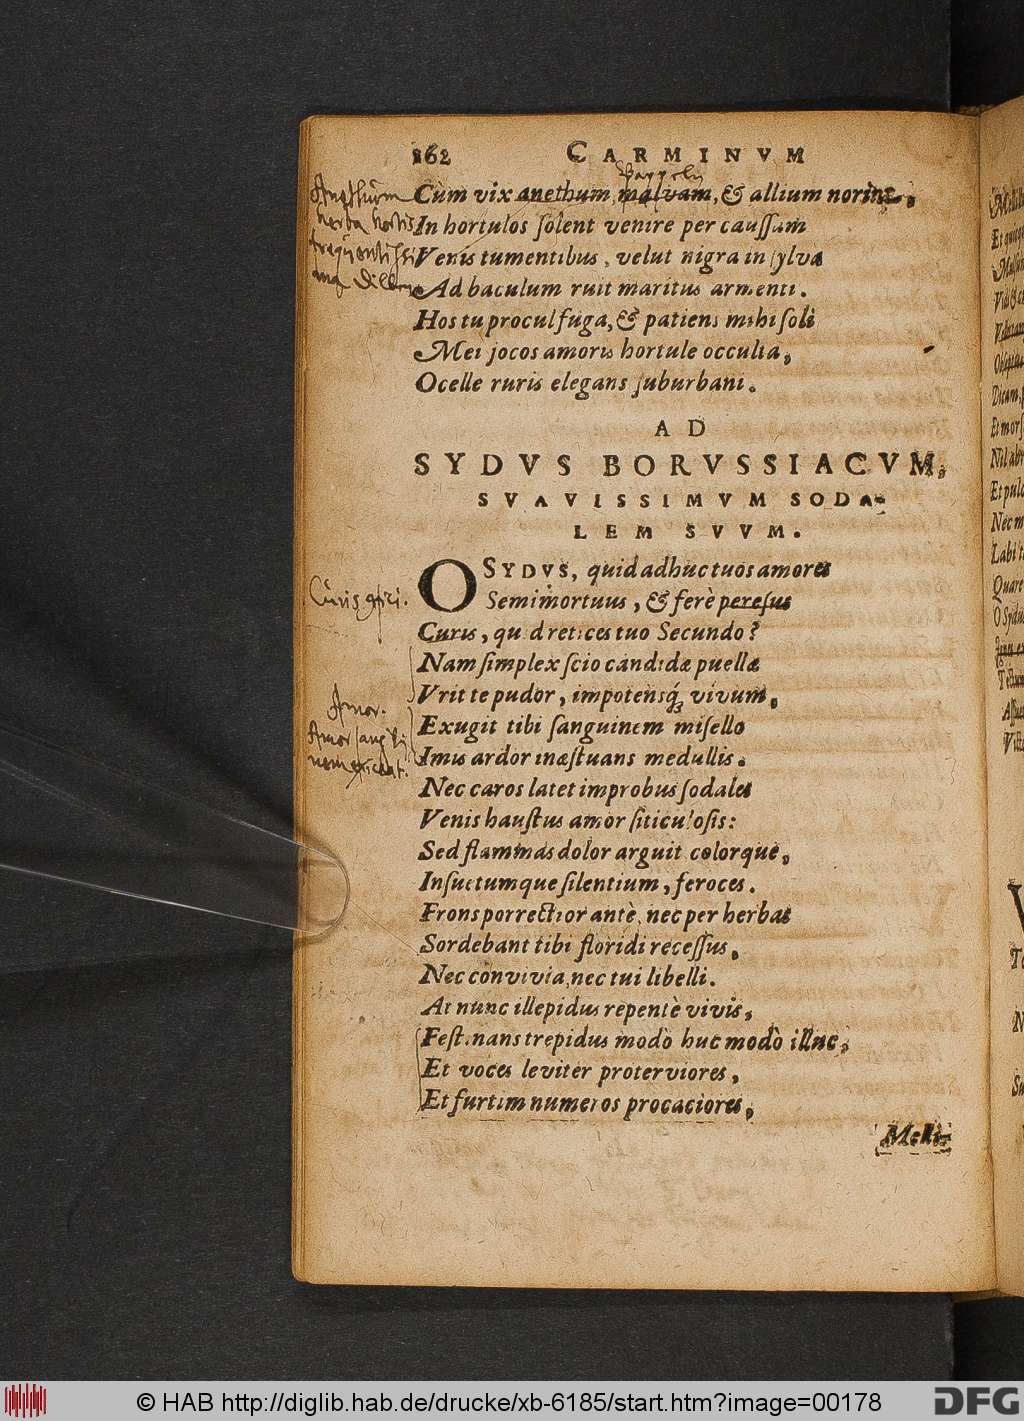 162 CARMINVM
Pappeln
Cùm vix anethum, malvam, & allium norint,
In hortulos solent venire per caussam
Venis tumentibus, velut nigra in sylva
Ad baculum ruit maritus armenti.
Hos tu procul fuga, & patiens mihi soli
Mei jocos amoris hortule occulta,
Ocelle ruris elegans suburbani.
Anethum
herba hortis
AD
SYDVS BORVSSIACVM,
SVAVISSIMVM SODA-
LEM SVVM.
O SYDVS, quid adhuc tuos amores
Semimortuus, & ferè peresus
Curis, quid retices tuo Secundo?
Nam simplex scio candidæ puellæ
Vrit te pudor, impotensq́; vivum,
Exugit tibi sanguinem misello
Imis ardor inæstuans medullis.
Nec caros latet improbus sodales
Venis haustus amor siticulosis:
Sed flammas dolor arguit colorque,
Insuetumque silentium, feroces.
Frons porrectior antè, nec per herbas
Sordebant tibi floridi recessus,
Nec convivia, nec tui libelli.
At nunc illepidus repentè vivis,
Festinans trepidus modò huc modò illuc,
Et voces leviter proterviores,
Et furtim numeros procaciores,
Curis
Amor.
Amor
Melli-
© HAB http://diglib.hab.de/drucke/xb-6185/start.htm?image=00178
DFG